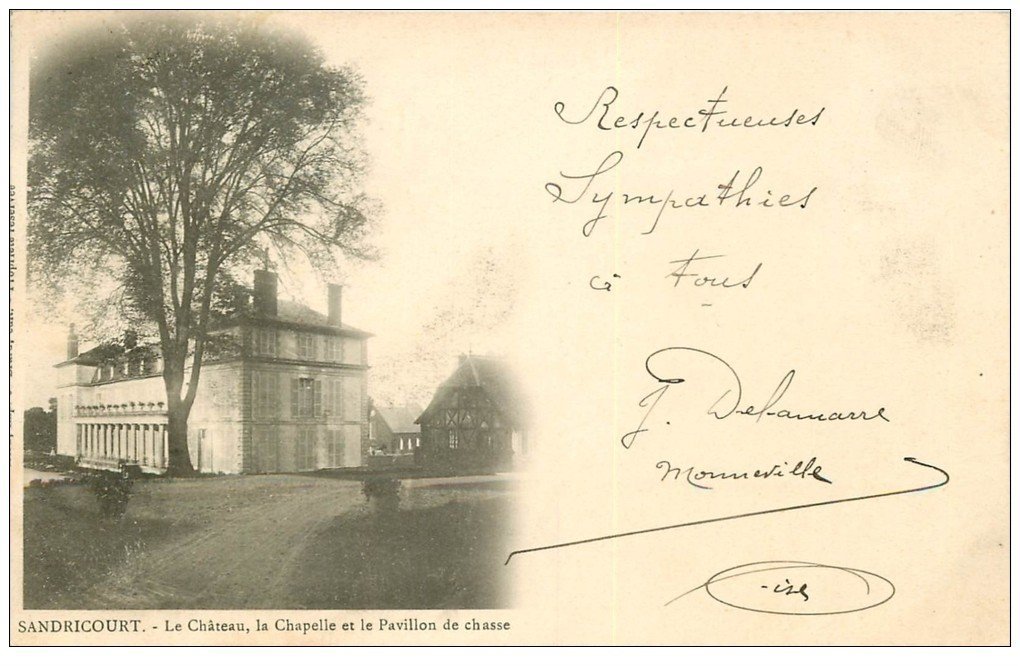 Respectueuses
Sympathies
à Tous
J. Delamarre
Monneville
Oise
SANDRICOURT. - Le Château, la Chapelle et le Pavillon de chasse